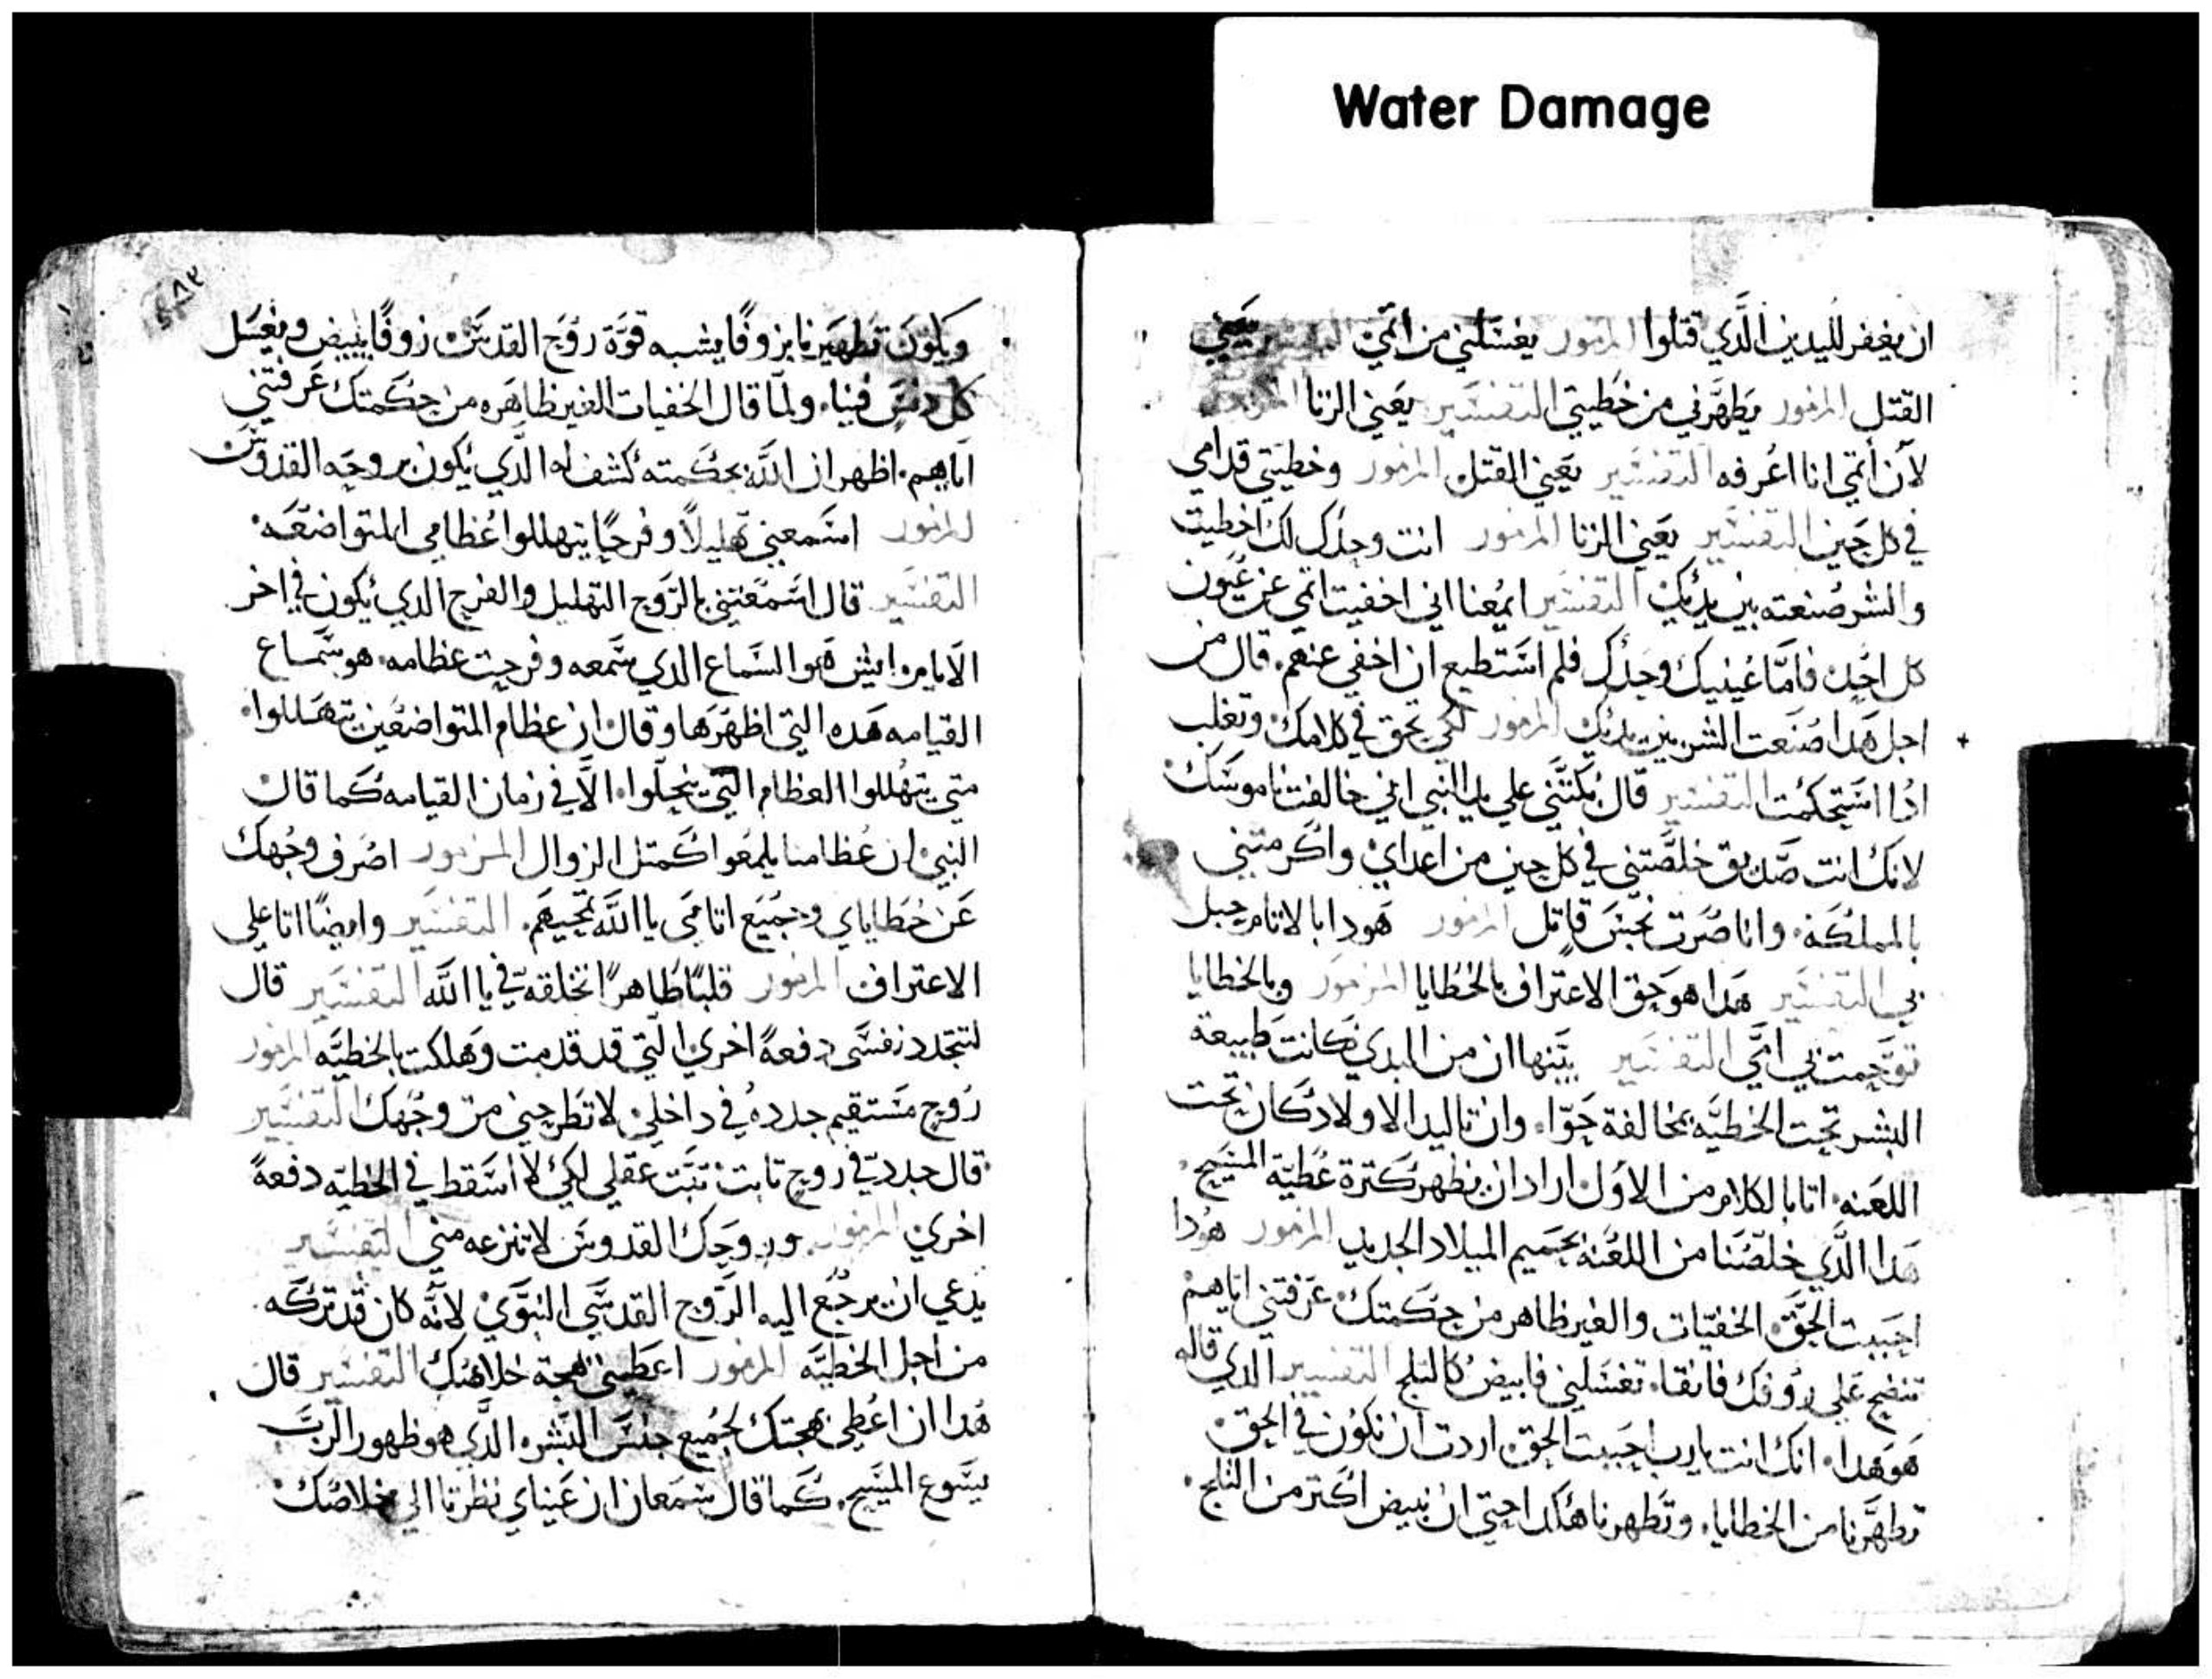 Water Damage
ان يغفر لليدين الذي قتلوا المزمور يغسلني من اثمي التفسير يعني
القتل المزمور يطهرني من خطيتي التفسير يعني الزنا المزمور
لان أثمي انا اعرفه التفسير يعني القتل المزمور وخطيتي قدامي
في كل حين التفسير يعني الزنا المزمور انت وحدك لك اخطيت
والشر صنعته بين يديك التفسير ايمعنا اني اخفيت اثمي عن عيون
كل احد فامّا عينيك وحدك فلم استطيع ان اخفي عنهم. قال من
اجل هدا صنعت الشر بين يديك المزمور لكي تحق في كلامك وتغلب
ادا استحكمت التفسير قال يكتني علي يا النبي انني خالفت ناموسك
لانك انت صديق خلصتني في كل حين من اعداي واكرمتني
بالمملكه وانا صرت نجس قاتل المزمور هودا بالاثام حبل
بي التفسير هدا هو حق الاعتراف بالخطايا المزمور وبالخطايا
توحمت بي امي التفسير بينها ان من البدي كانت طبيعة
البشر تحت الخطيه بمخالفة حوّا. وان تاليد الاولاد كان تحت
اللعنه. اتا بالكلام من الأول اراد ان يظهر كترة عطيّة المسيح
هدا الدي خلّصنا من اللعنه بحميم الميلاد الجديد المزمور هودا
احببت الحق الخفيّات والغير ظاهر من حكمتك عرفتني اياهم
تنضح علي زوفك فانقا. تغسلني فابيض كالتلج التفسير الدي قاله
هو هدا. انك انت يارب احببت الحق اردت ان نكون في الحق
تطهّرنا من الخطايا. وتطهرنا هكدا حتي ان نبيض اكتر من التلج.
ويكون تطهيرنا بزوفا يشبه قوّة روح القدس زوفا يبيض ويغسل
كل دنس فينا. ولما قال الخفيات الغير ظاهره من حكمتك عرفتني
اياهم. اظهر ان الله بحكمته كشف له الدي يكون بروحه القدوس
المزمور استمعني تهليلًا وفرحًا يتهللوا عظامي المتواضعه
التفسير قال اسمعتني بالروح التهليل والفرح الدي يكون في اخر
الايام. ايش هو السماع الدي سمعه وفرحت عظامه. هو سماع
القيامه هده التي اظهرها وقال ان عظام المتواضعين تتهللوا
متي يتهللوا العظام التي ينحلّوا. الّا في زمان القيامه كما قال
النبي ان عظامنا يلمعوا كمتل الزوال المزمور اصرف وجهك
عن خطاياي وجميع اتامي يا الله تمحيهم. التفسير وايضًا اتا علي
الاعتراف المزمور قلبًا طاهرًا تخلقه في يا الله التفسير قال
لتتجدد نفسي دفعةً اخري التي قد قدمت وهلكت بالخطيّه المزمور
روح مستقيم جدده في داخلي لا تطرحني من وجهك التفسير
قال جدد في روح تابت تتبت عقلي لكي لا أسقط في الخطيّه دفعةً
اخري المزمور. وروحك القدوس لا تنزعه مني التفسير
يدعي ان يرجع اليه الروح القدسي النبوّي لانّه كان قد تركه
من اجل الخطيّه المزمور اعطيني بهجة خلاصك التفسير قال
هدا ان اعطي بهجتك لجميع جنس البشر. الدي هو ظهور الرب
يسوع المسيح. كما قال سمعان ان عيناي نظرتا الي خلاصك